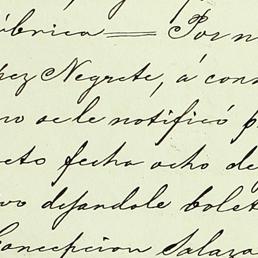 úbrica = Por n
hez Negrete, á cons
no se le notificó p
eto fecha ocho de
vo dejandole bolet
Concepcion Salaza